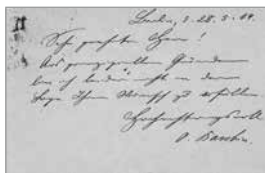 Berlin, d. 28. 5. 04.
Sehr geehrter Herr!
Aus prinzipiellen Gründen
bin ich leider nicht in der
Lage Ihren Wunsch zu erfüllen.
Hochachtungsvoll